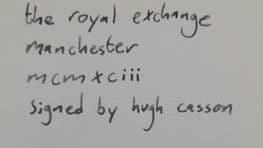 the royal exchange
manchester
mcmxciii
signed by hugh casson